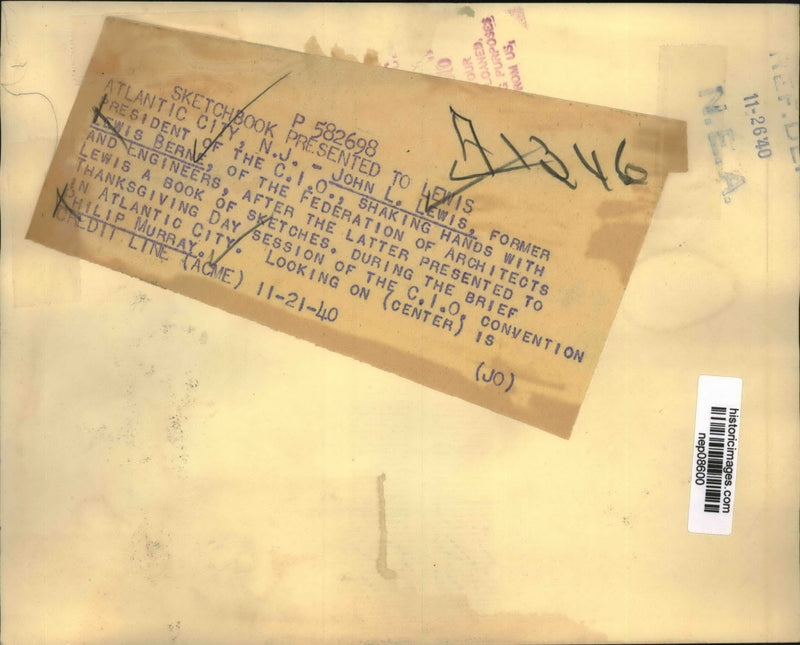 P 582698
SKETCHBOOK PRESENTED TO LEWIS
ATLANTIC CITY, N.J. - JOHN L. LEWIS, FORMER
PRESIDENT OF THE C.I.O., SHAKING HANDS WITH
LEWIS BERNE, OF THE FEDERATION OF ARCHITECTS
AND ENGINEERS, AFTER THE LATTER PRESENTED TO
LEWIS A BOOK OF SKETCHES, DURING THE BRIEF
THANKSGIVING DAY SESSION OF THE C.I.O. CONVENTION
IN ATLANTIC CITY. LOOKING ON (CENTER) IS
PHILIP MURRAY.
CREDIT LINE (ACME) 11-21-40
(JO)
OUR
LOANED,
PURPOSES
FROM US,
REF. DE
11-26'40
N.E.A.
historicimages.com
nep08600